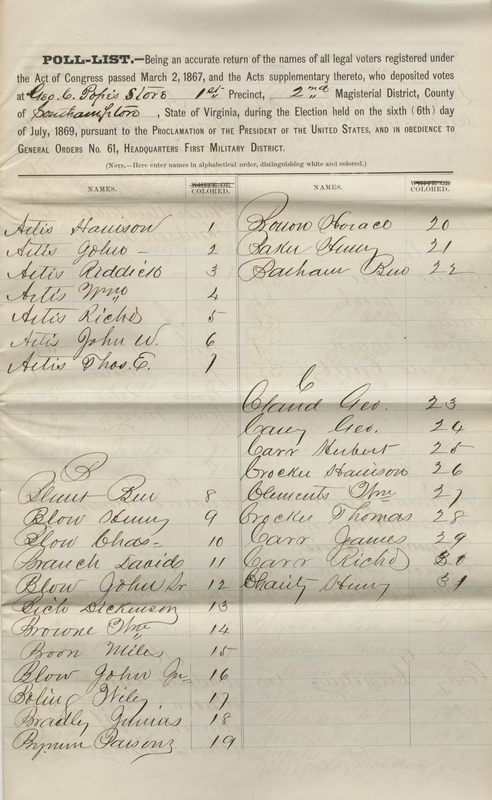 POLL-LIST.—Being an accurate return of the names of all legal voters registered under
the Act of Congress passed March 2, 1867, and the Acts supplementary thereto, who deposited votes
at Geo. C. Pope's Store 1st Precinct, 2nd Magisterial District, County
of Southampton, State of Virginia, during the Election held on the sixth (6th) day
of July, 1869, pursuant to the PROCLAMATION OF THE PRESIDENT OF THE UNITED STATES, AND IN OBEDIENCE TO
GENERAL ORDERS No. 61, HEADQUARTERS FIRST MILITARY DISTRICT.
(NOTE.—Here enter names in alphabetical order, distinguishing white and colored.)
NAMES. WHITE OR COLORED.
Artis Harrison 1
Artis John 2
Artis Riddick 3
Artis Wm 4
Artis Richd 5
Artis John W. 6
Artis Thos. E. 7
B
Blunt Ben 8
Blow Henry 9
Blow Chas- 10
Branch David 11
Blow John Sr 12
Dickinson 13
Browne Wm 14
Boon Miles 15
Blow John Jr 16
Boling Wiley 17
Bradley Junius 18
Bynum Parsons 19
NAMES. WHITE OR COLORED.
Horace 20
Baker Henry 21
Barham Ben 22
C
Claud Geo. 23
Cary Geo. 24
Carr Herbert 25
Crocker Harrison 26
Clements Wm 27
Crocker Thomas 28
Carr James 29
Carr Richd 30
Charity Henry 31